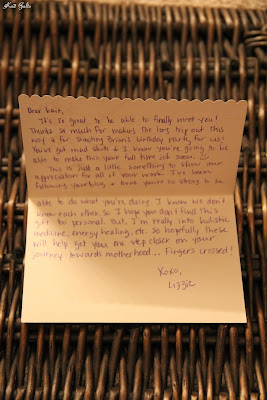 Kait Gatto
Dear Kait,
It's so good to be able to finally meet you!
Thanks so much for making the long trip out this
way & for shooting Brian's birthday party for us!
You've got mad skills & I know you're going to be
able to make this your full time job soon.
This is just a little something to show our
appreciation for all of your work. I've been
following your blog & think you're so strong to be
able to do what you're doing. I know we don't
know each other, so I hope you don't find this
gift too personal. But, I'm really into holistic
medicine, energy healing, etc. so hopefully these
will help get you one step closer on your
journey towards motherhood... Fingers crossed!
Xoxo,
Lizzie